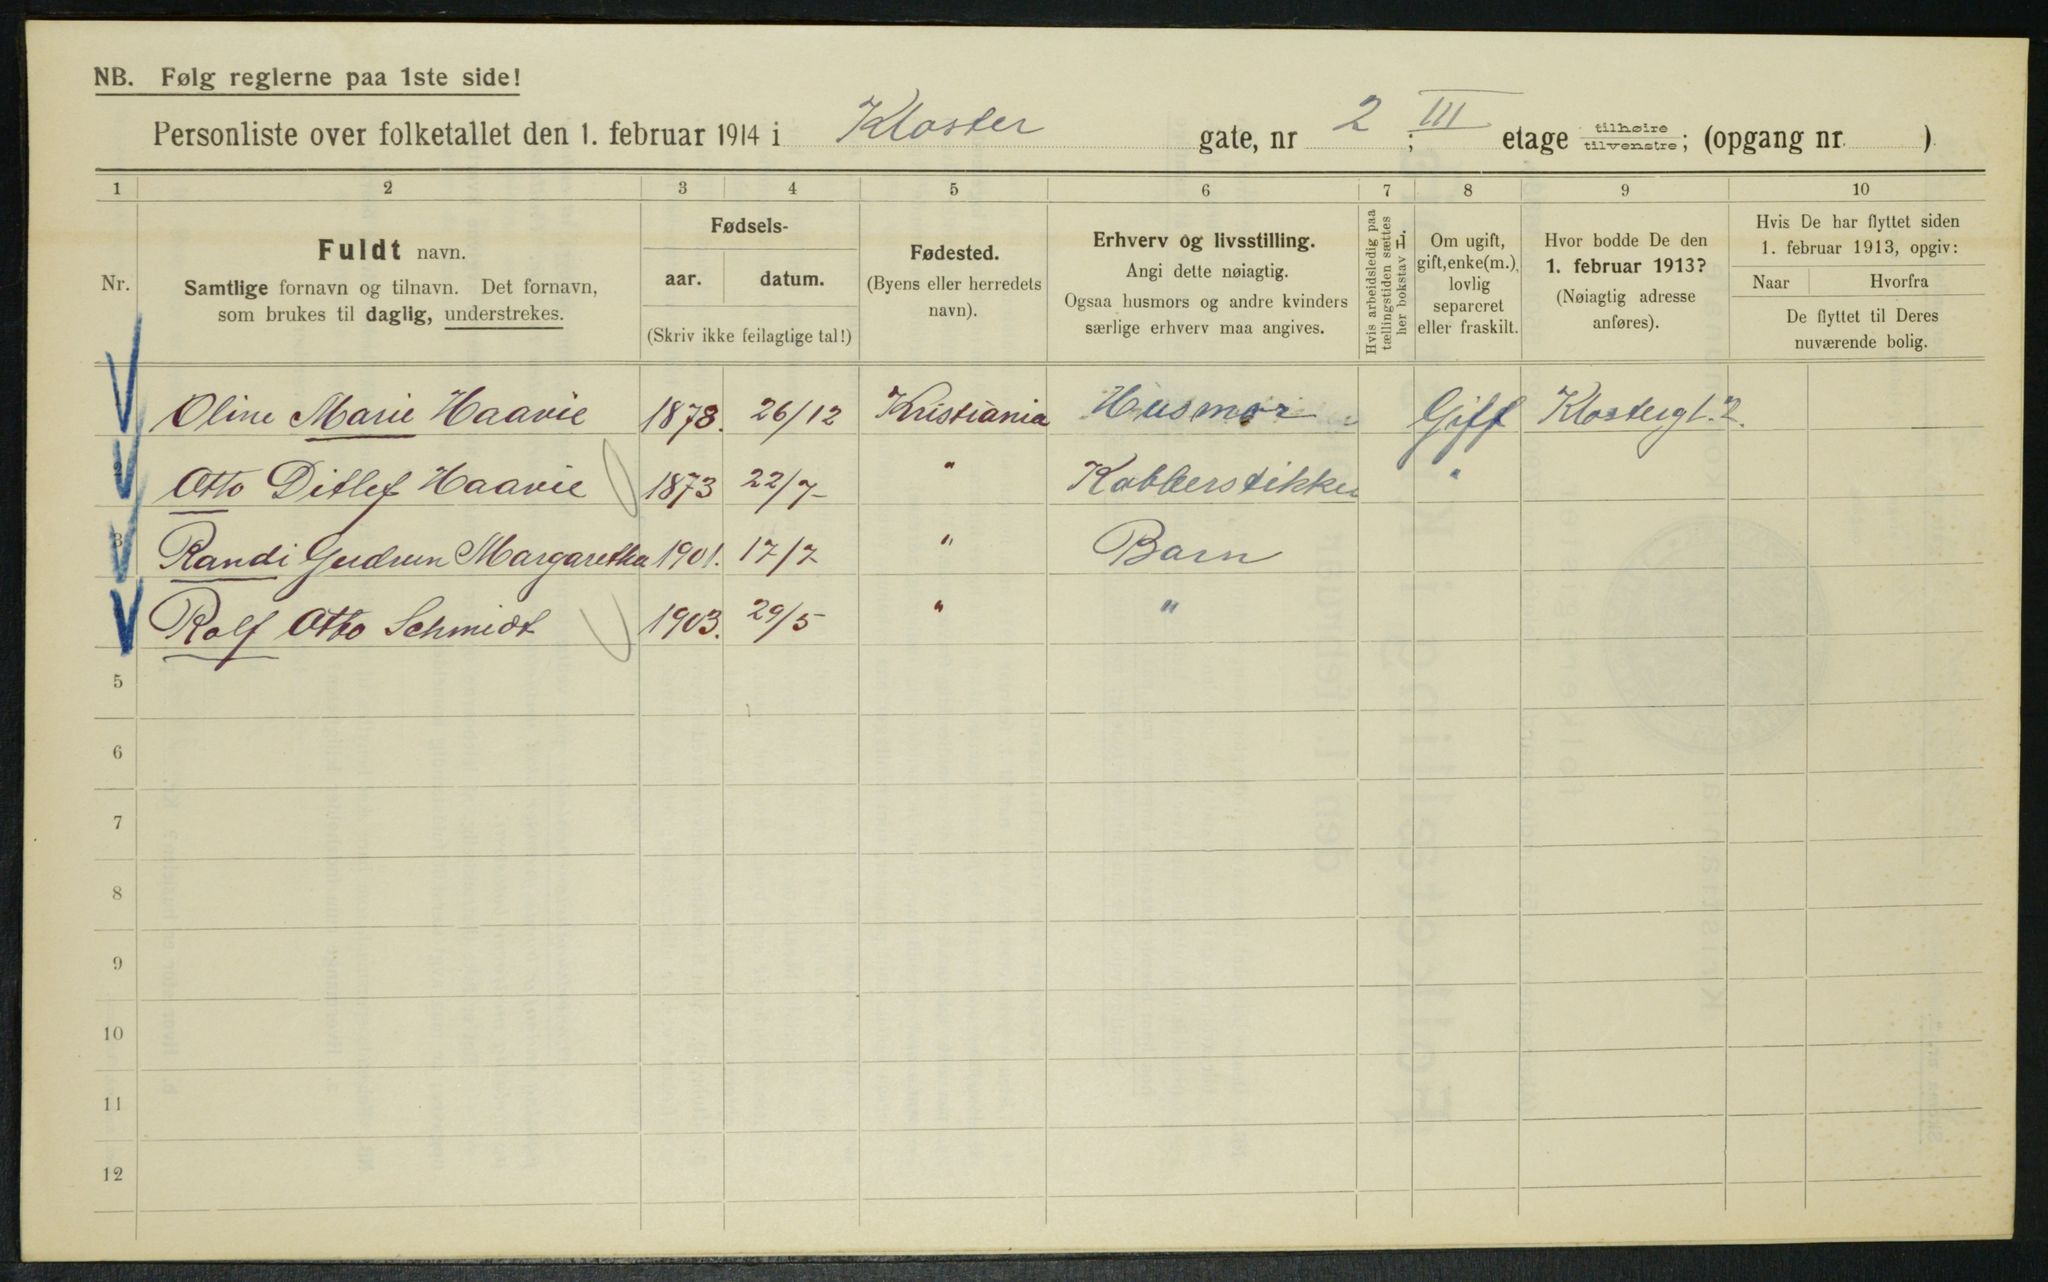 NB. Følg reglerne paa 1ste side!
Personliste over folketallet den 1. februar 1914 i Kloster gate, nr 2; III etage tilhøire tilvenstre; (opgang nr. )
1 2 3 4 5 6 7 8 9 10
Nr.
Fuldt navn.
Samtlige fornavn og tilnavn. Det fornavn,
som brukes til daglig, understrekes.
Fødsels-
aar. datum.
(Skriv ikke feilagtige tal!)
Fødested.
(Byens eller herredets
navn).
Erhverv og livsstilling.
Angi dette nøiagtig.
Ogsaa husmors og andre kvinders
særlige erhverv maa angives.
Hvis arbeidsledig paa
tællingstiden sættes
her bokstav L.
Om ugift,
gift, enke(m.),
lovlig
separeret
eller fraskilt.
Hvor bodde De den
1. februar 1913?
(Nøiagtig adresse
anføres).
Hvis De har flyttet siden
1. februar 1913, opgiv:
Naar Hvorfra
De flyttet til Deres
nuværende bolig.
Oline Marie Haavie 1878. 26/12 Kristiania Husmor Gift Klostergt. 2.
2 Otto Ditlef Haavie 1873 22/7 " Kobberstikker "
3 Randi Gudrun Margaretha 1901. 17/7 " Barn
Rolf Otto Schmidt 1903. 29/5 " "
5
6
7
8
9
10
11
12